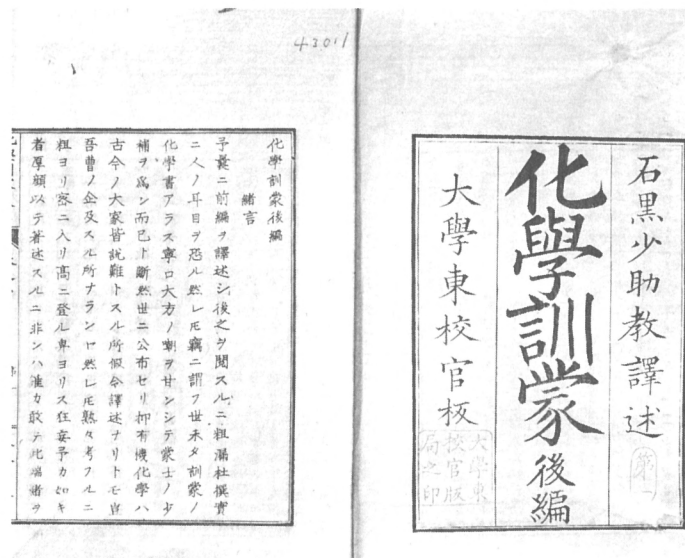 石黒少助教譯述
第一
化學訓蒙後編
大學東校官板
大學東
校官版
局之印
43011
化學訓蒙後編
緒言
予曩ニ前編ヲ譯述シ後之ヲ閲スルニ粗漏杜撰實
ニ人ノ耳目ヲ恐ル然レ𪜈竊ニ謂フ世未タ訓蒙ノ
化學書アラス寧ロ大方ノ嘲ヲ甘ンシテ蒙士ノ少
補ヲ爲ン而已ト斷然世ニ公布セリ抑有機化學ハ
古今ノ大家皆説難トスル所假令譯述ナリトモ豈
吾曹ノ企及スル所ナランヤ然レ𪜈熟々考フルニ
粗ヨリ密ニ入リ高ニ登ル卑ヨリス狂妄予カ如キ
者厚顔以テ著述スルニ非ンハ誰カ敢テ此端緒ヲ